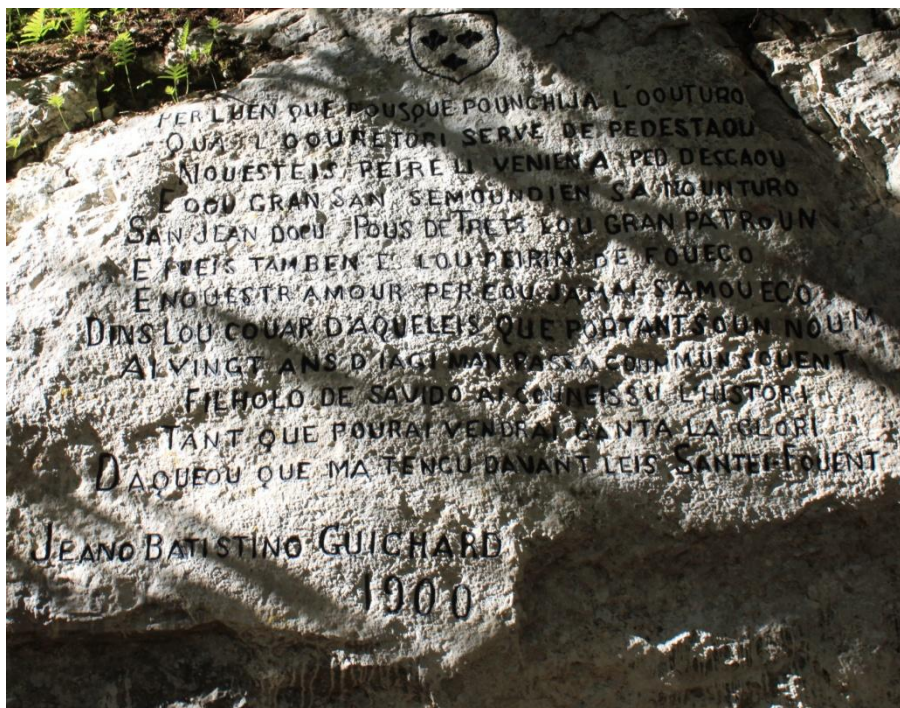 PER LUEN QUE POUSQUE POUNCHIJA L'OOUTURO
QUA L'OOURETORI SERVE DE PEDESTAOU
NOUESTEIS REIRE LI VENIEN A PED DESCAOU
E OOU GRAN SAN SEMOUNDIEN SA MOUNTURO
SAN JEAN DOOU POUS DE TRETS LOU GRAN PATROUN
E PUEIS TAMBEN ES LOU PEIRIN DE FOUECO
E NOUESTR'AMOUR PER EOU JAMAI S'AMOUECO
DINS LOU COUAR D'AQUELEIS QUE PORTANT SOUN NOUM
AI VINGT ANS D'IAGI M'AN PASSA COUMMUN SOUENT
FILHOLO DE SA VIDO AI COUNEISSU L'HISTORI
TANT QUE POURAI VENDRAI CANTA LA GLORI
DAQUEOU QUE MA TENGU DAVANT LEIS SANTEI-FOUENT
JEANO BATISTINO GUICHARD
1900